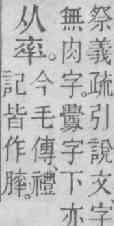 祭義疏引說文字
無肉字。釁字下亦
从率。
今毛傳禮
記皆作膟。